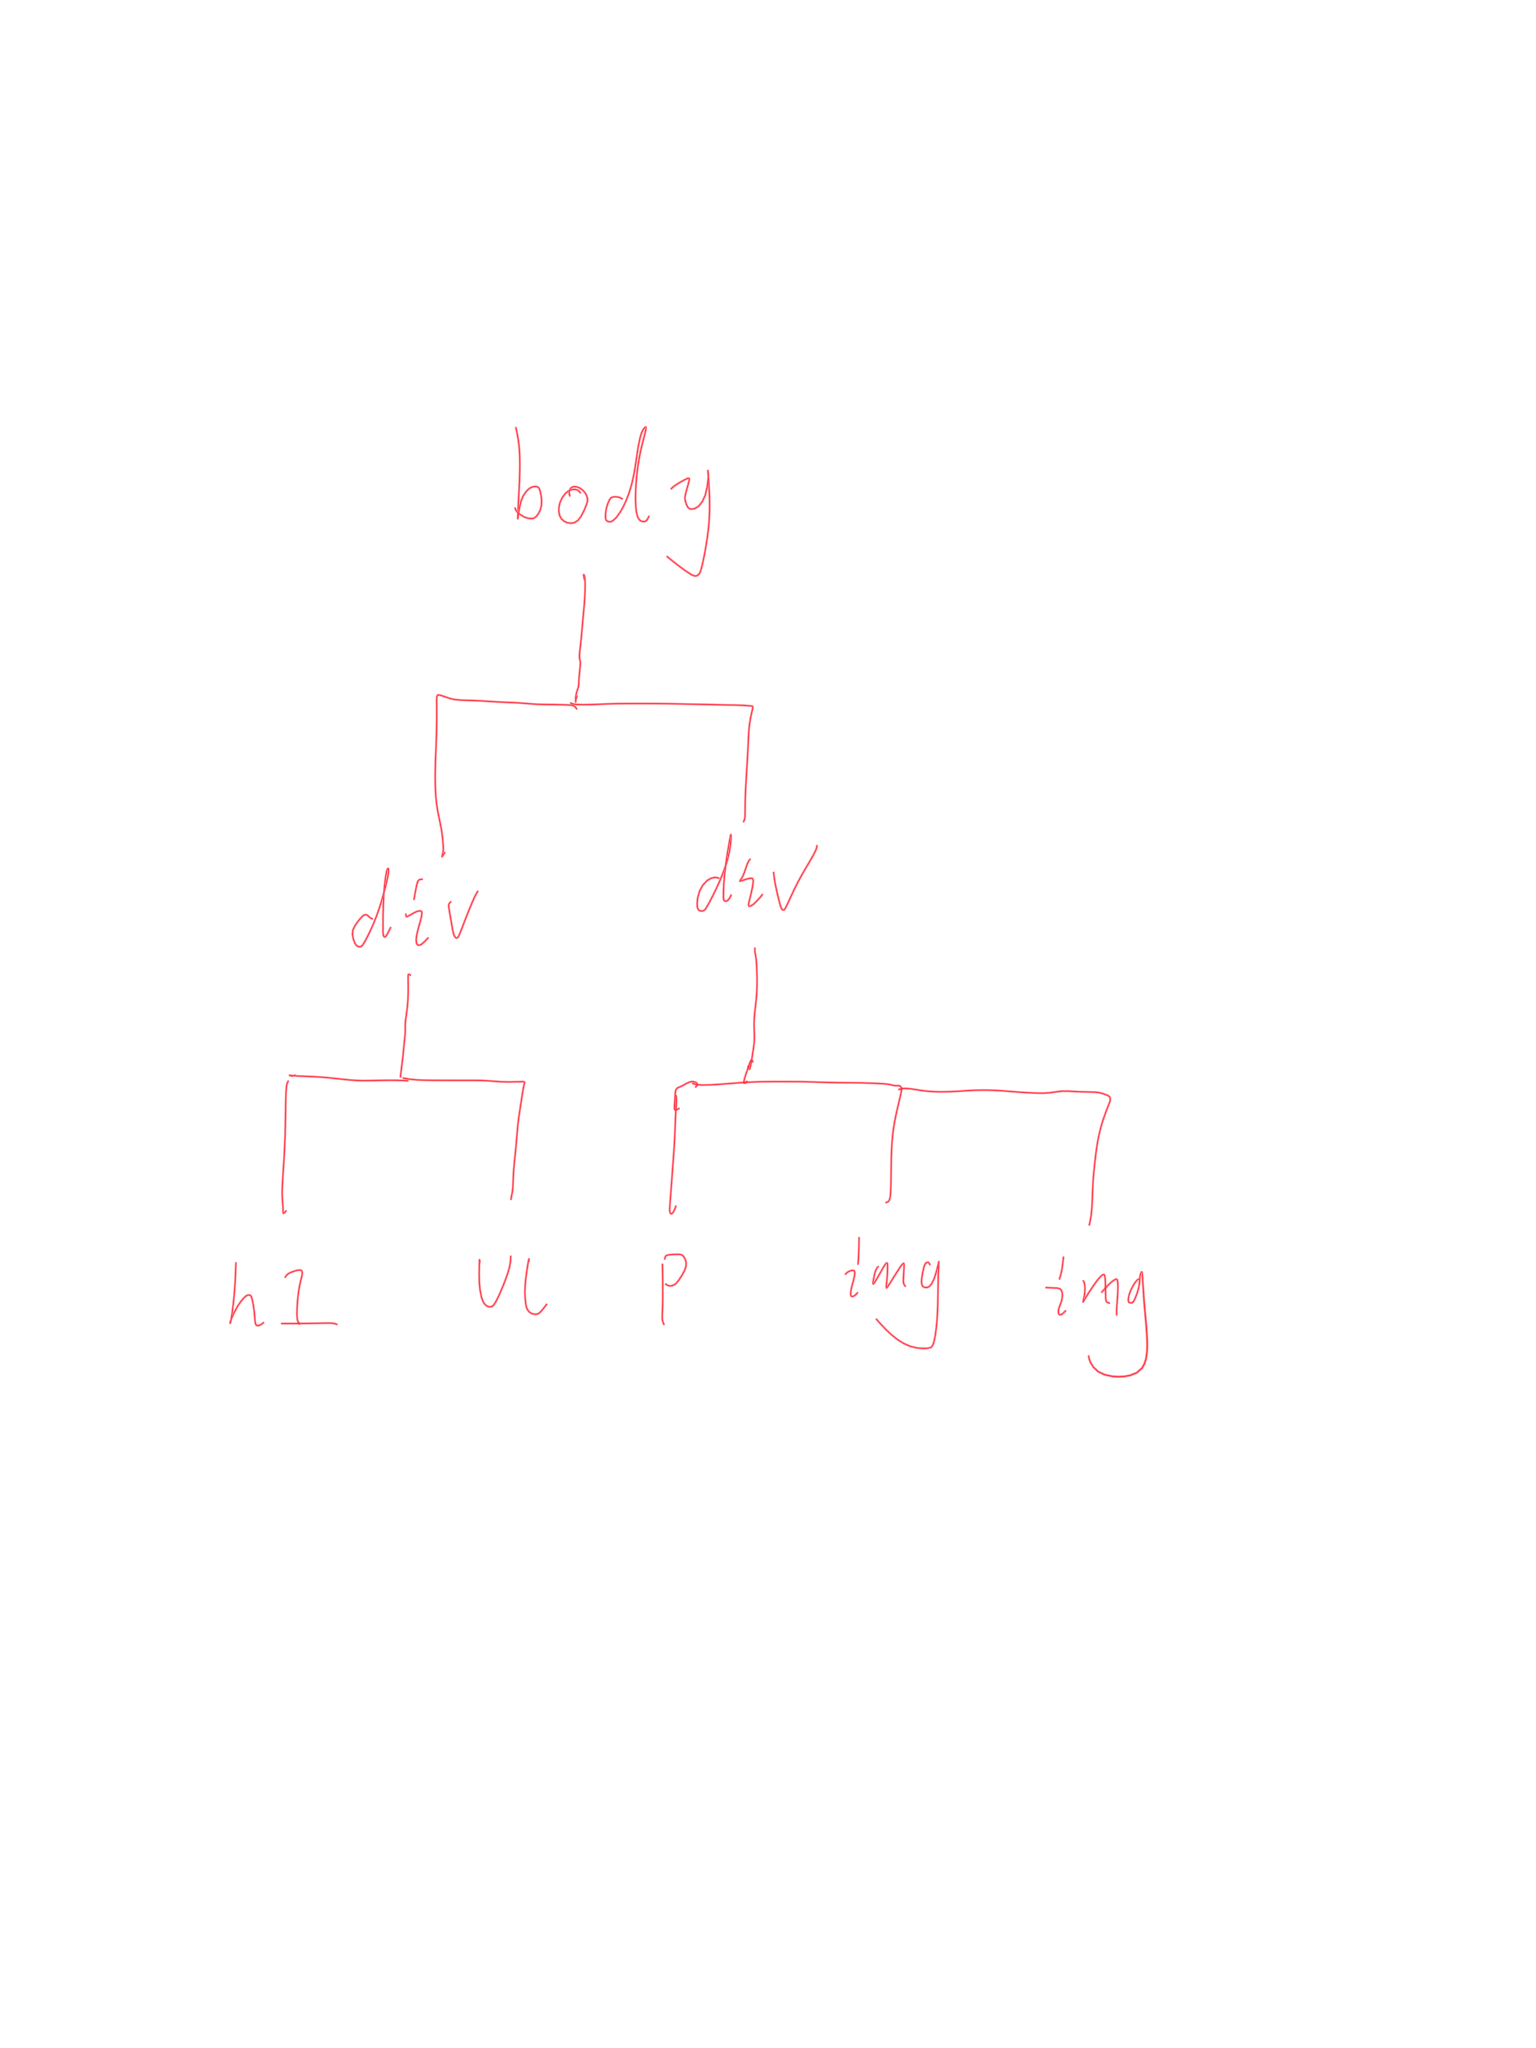 body
div div
h1 ul p img img